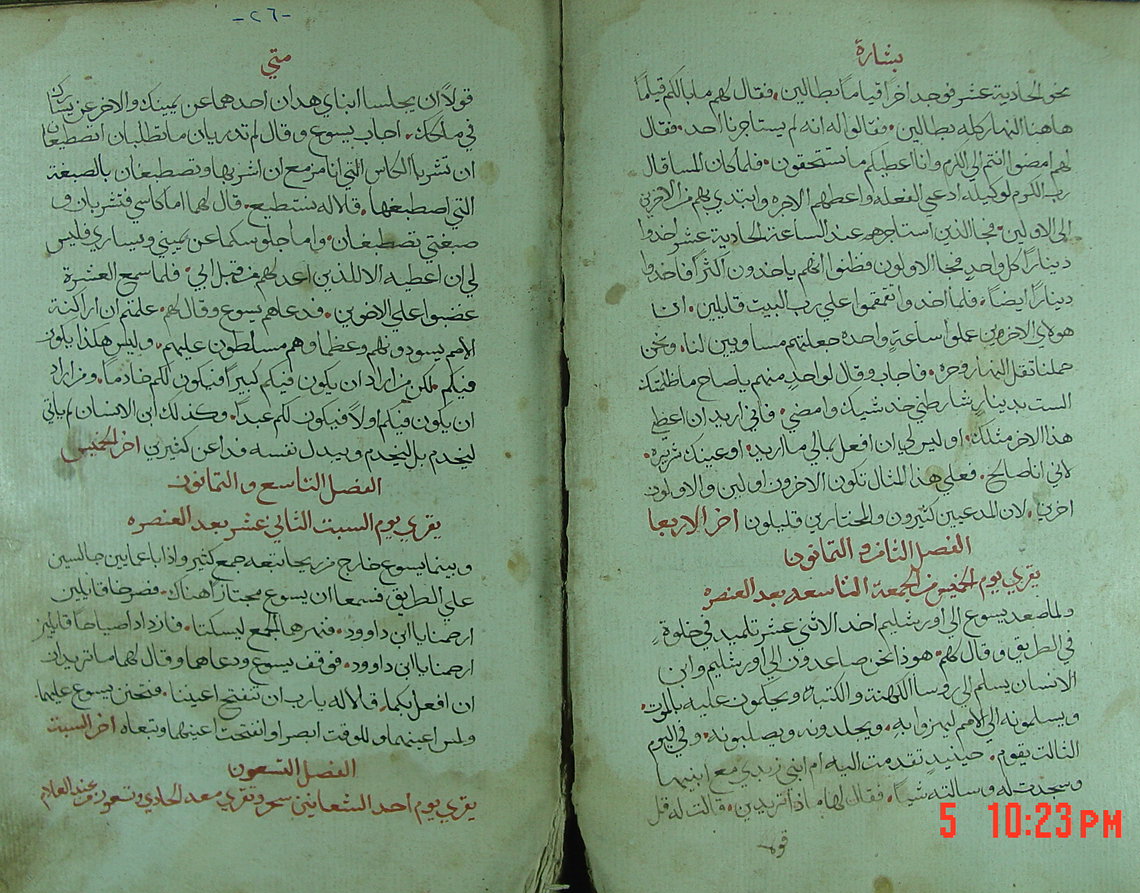 بشارة
نحو الحادية عشر فوجد اخرًا قيامًا بطالين. فقال لهم ما بالكم قيامًا
هاهنا النهار كله بطالين. فقالوا له انه لم يستاجرنا احد. فقال
لهم امضوا انتم الي الكرم وانا اعطيكم ما تستحقون. فلما كان المسا قال
رب الكرم لوكيله ادعي الفعله واعطهم الاجره وابتدي بهم من الاخرين
الي الاولين. فجا الذين استاجرهم عند الساعة الحادية عشر اخدوا
دينارًا كل واحدٍ فجا الاولون فظنوا انهم ياخدون اكثر فاخدوا
دينارًا ايضًا. فلما اخدوا تقمقموا علي رب البيت قايلين. ان
هولاي الاخرين عملوا ساعة واحدة جعلتهم مساويين لنا. ونحن
حملنا ثقل النهار وحره. فاجاب وقال لواحدٍ منهم ياصاح ما ظلمتك
الست بدينارٍ شارطتني خد شيك وامضي. فاني اريد ان اعطي
هذا الاخر مثلك. او ليس لي ان افعل بمالي ما اريد. او عينك شريره.
لاني انا صالح. فعلي هذا المثال تكون الاخرون اولين والاولون
اخرين. لان المدعيين كثيرون والمختارين قليلون اخر الاربعا
الفصل الثامن و الثمانون
يقري يوم الخميس من الجمعة التاسعه بعد العنصره
ولما صعد يسوع الي اورشليم اخد الاثني عشر تلميد في خلوةٍ
في الطريق وقال لهم. هوذا نحن صاعدون الي اورشليم وابن
الانسان يسلم الي روسا الكهنة والكتبة ويحكمون عليه بالموت.
ويسلمونه الي الامم ليهزوا به. ويجلدونه ويصلبونه. وفي اليوم
الثالث يقوم. حينيدٍ تقدمت اليه ام ابني زبدي مع ابنيها
وسجدت له وسالته شيًا. فقال لها ماذا تريدين. قالت له قل
قولا
-٢٦-
متي
قولاً ان يجلسا ابناي هدان احدهما عن يمينك والاخر عن يسارك
في ملكك. اجاب يسوع وقال لم تدريان ما تطلبان اتستطيعان
ان تشربا الكاس التي انا مزمع ان اشربها وتصطبغان بالصبغة
التي اصطبغها. قالا له نستطيع. قال لهما اما كاسي فتشربان و
صبغتي تصطبغان. واما جلوسكما عن يميني ويساري فليس
لي ان اعطيه الا للذين اعد لهم من قبل ابي. فلما سمع العشرة
غضبوا علي الاخوين. فدعاهم يسوع وقال لهم. علمتم ان اراكنة
الامم يسودونهم وعظماوهم مسلطون عليهم. وليس هكذا يكون
فيكم. لكن من اراد ان يكون فيكم كبيرًا فيكون لكم خادمًا. ومن اراد
ان يكون فيكم اولاً فيكون لكم عبدًا. وكذلك ابن الانسان لم ياتي
ليخدم بل ليخدم ويبدل نفسه فدا عن كثيرين اخر الخميس
الفصل التاسع و الثمانون
يقري يوم السبت الثاني عشر بعد العنصره
وبينما يسوع خارج من ريحا تبعه جمع كثير واذا باعمايين جالسين
علي الطريق فسمعا ان يسوع مجتازًا هناك. فصرخا قايلين
ارحمنا يا ابن داوود. فنهرهما الجمع ليسكتا. فازدادا صياحًا قايلين
ارحمنا يا ابن داوود. فوقف يسوع ودعاهما وقال لهما ما تريدان
ان افعل بكما. قالا له يارب ان تنفتح اعيننا. فتحنن يسوع عليهما
ولمس اعينهما وللوقت ابصرا وانفتحت اعينهما وتبعاه اخر السبت
الفصل التسعون
يقري يوم احد الشعانين سحر وتقري معه الحادي وتسعون
5 10:23 PM